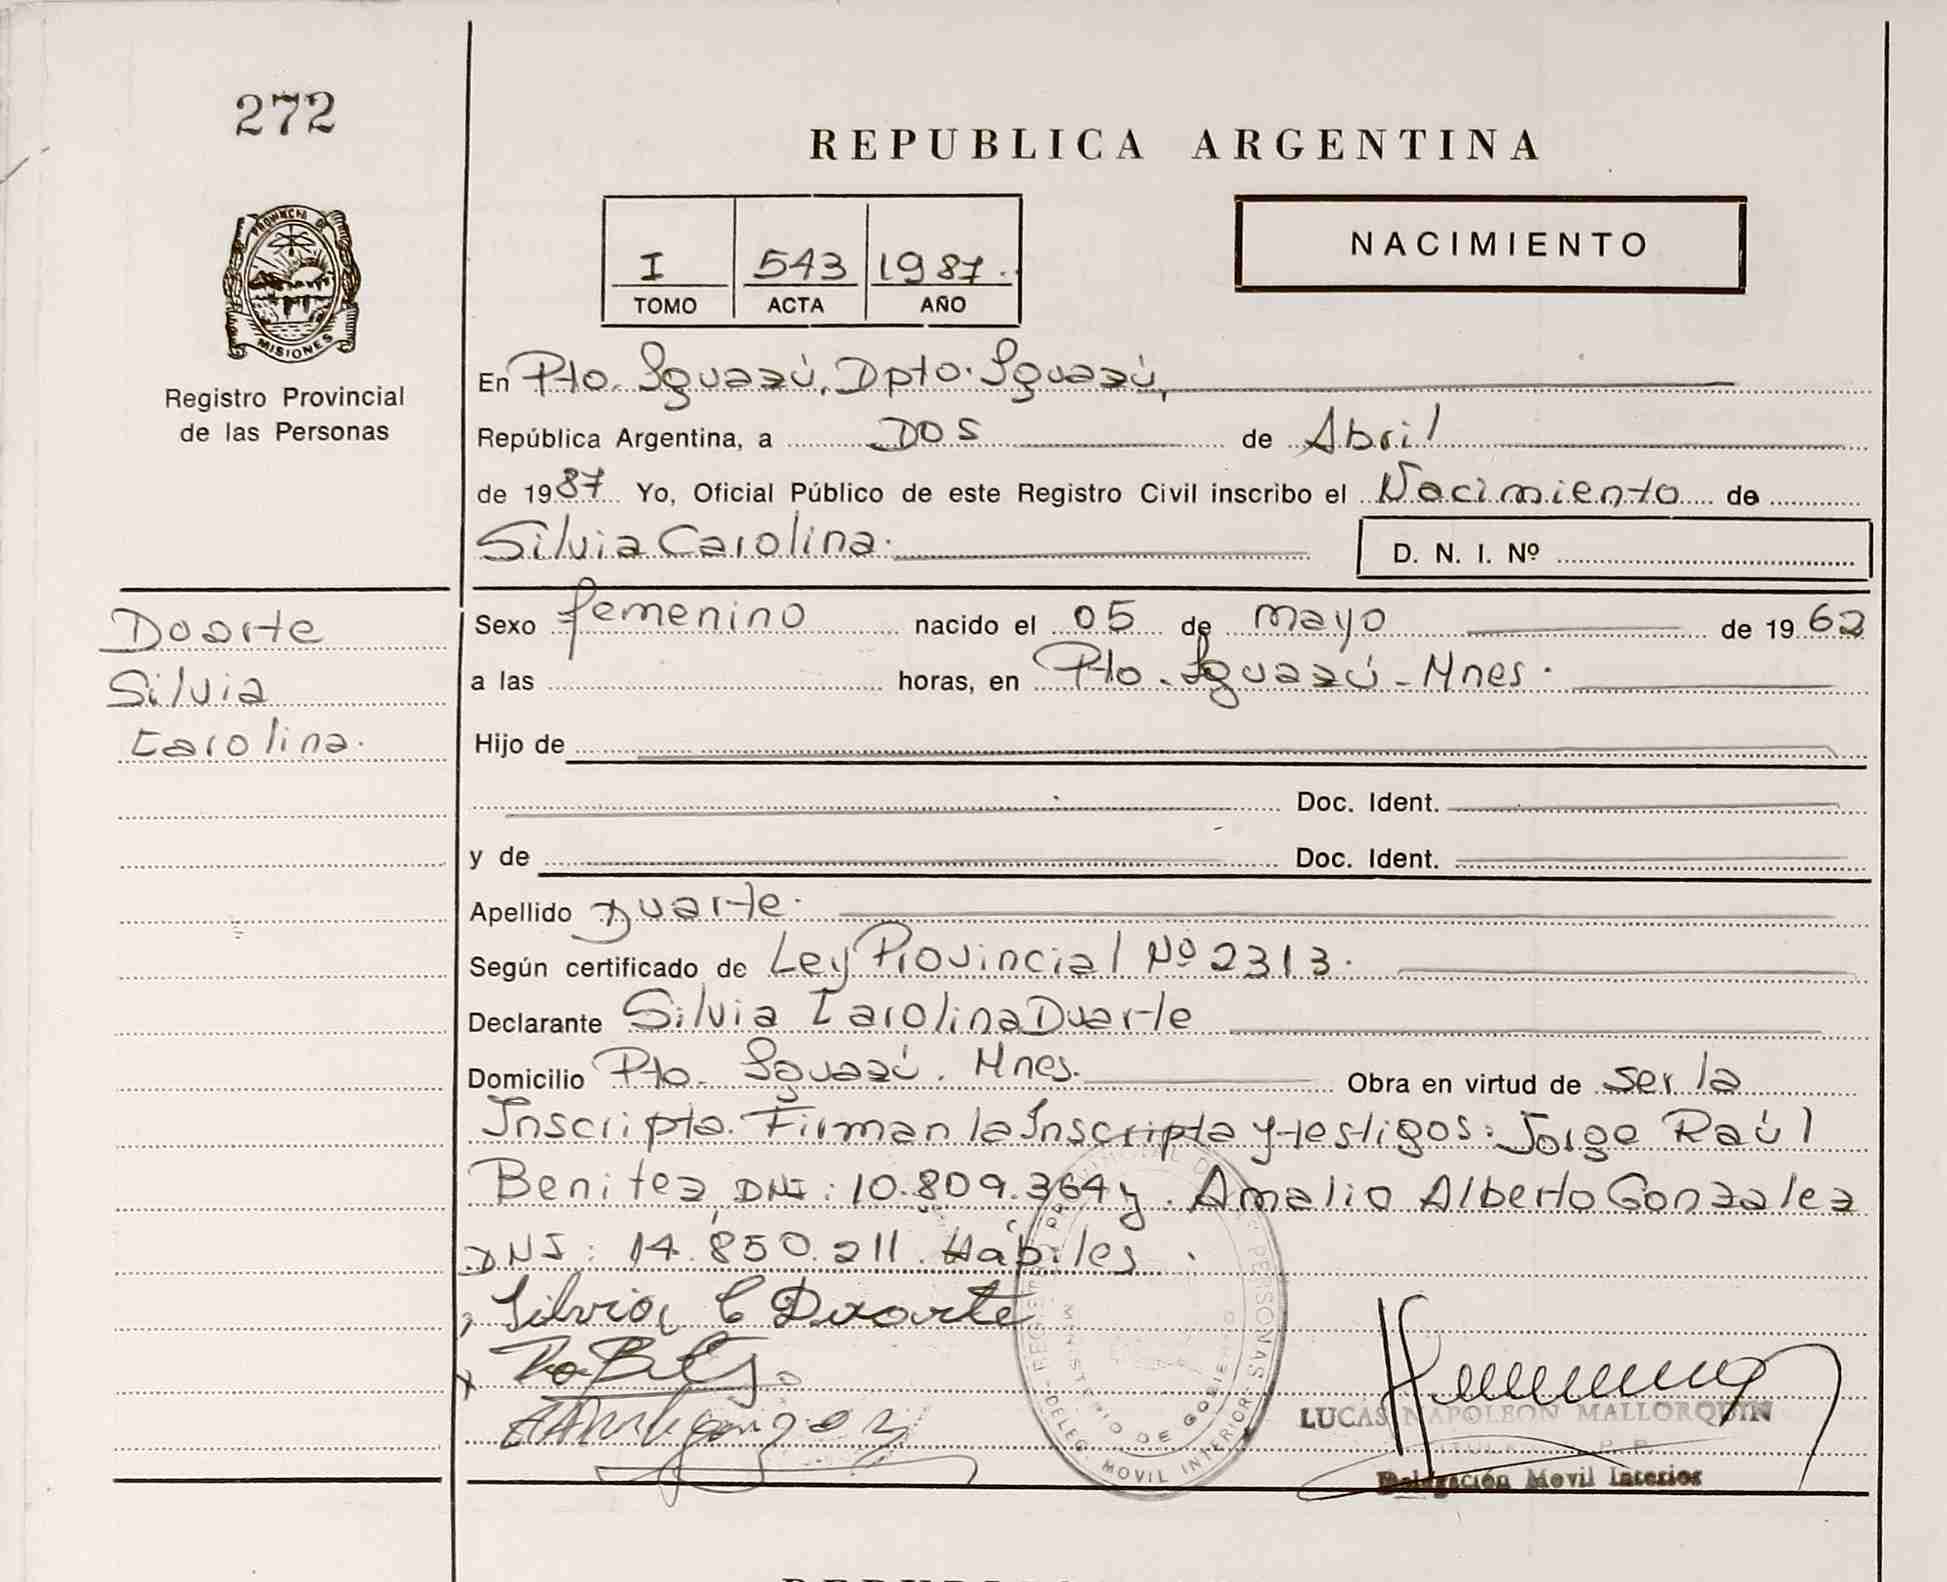 272
REPUBLICA ARGENTINA
PROVINCIA DE
MISIONES
Registro Provincial
de las Personas
I 543 1987.
TOMO ACTA AÑO
NACIMIENTO
En Pto. Iguazú, Dpto. Iguazú,
República Argentina, a Dos de Abril
de 1987 Yo, Oficial Público de este Registro Civil inscribo el Nacimiento de
Silvia Carolina.
D. N. I. Nº
Duarte
Silvia
Carolina.
Sexo femenino nacido el 05 de mayo de 1962
a las horas, en Pto. Iguazú - Mnes.
Hijo de
Doc. Ident.
y de Doc. Ident.
Apellido Duarte.
Según certificado de Ley Provincial Nº 2313.
Declarante Silvia Carolina Duarte
Domicilio Pto. Iguazú. Mnes. Obra en virtud de ser la
Inscripta. Firman la Inscripta y testigos: Jorge Raúl
Benitez DNI: 10.809.364 y Amalio Alberto Gonzalez
DNI: 14.850.211. Hábiles.
Silvia C Duarte
LUCAS NAPOLEON MALLORQUIN
Delegación Movil Interior
PERSONAS
MINISTERIO DE GOBIERNO
DELEG. MOVIL INTERIOR